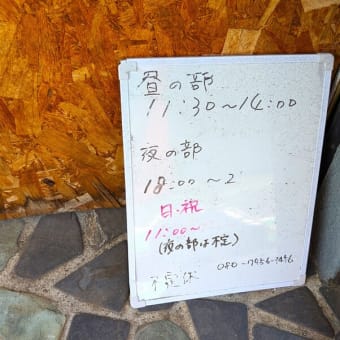 昼の部
11:30~14:00
夜の部
18:00~2
日・祝
11:00~
(夜の部は不定)
不定休